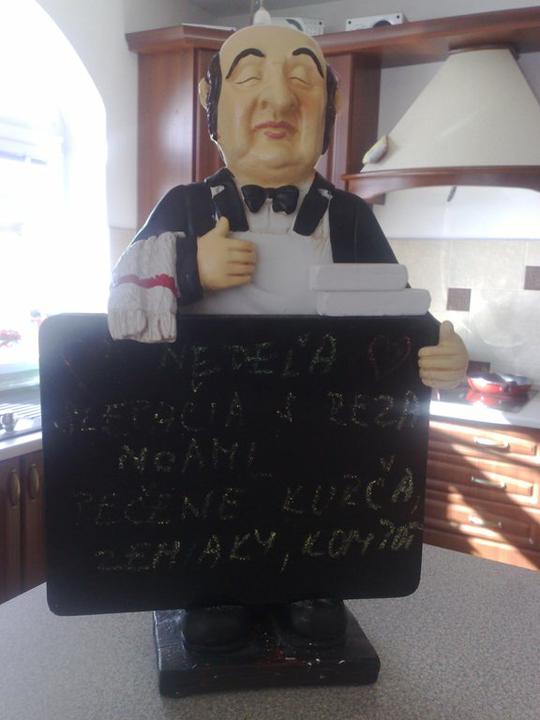 NEDEĽA
SLEPAČIA S REZA
NCAMI
PEČENE KURČA,
ZEMIAKY, KOMPÓT